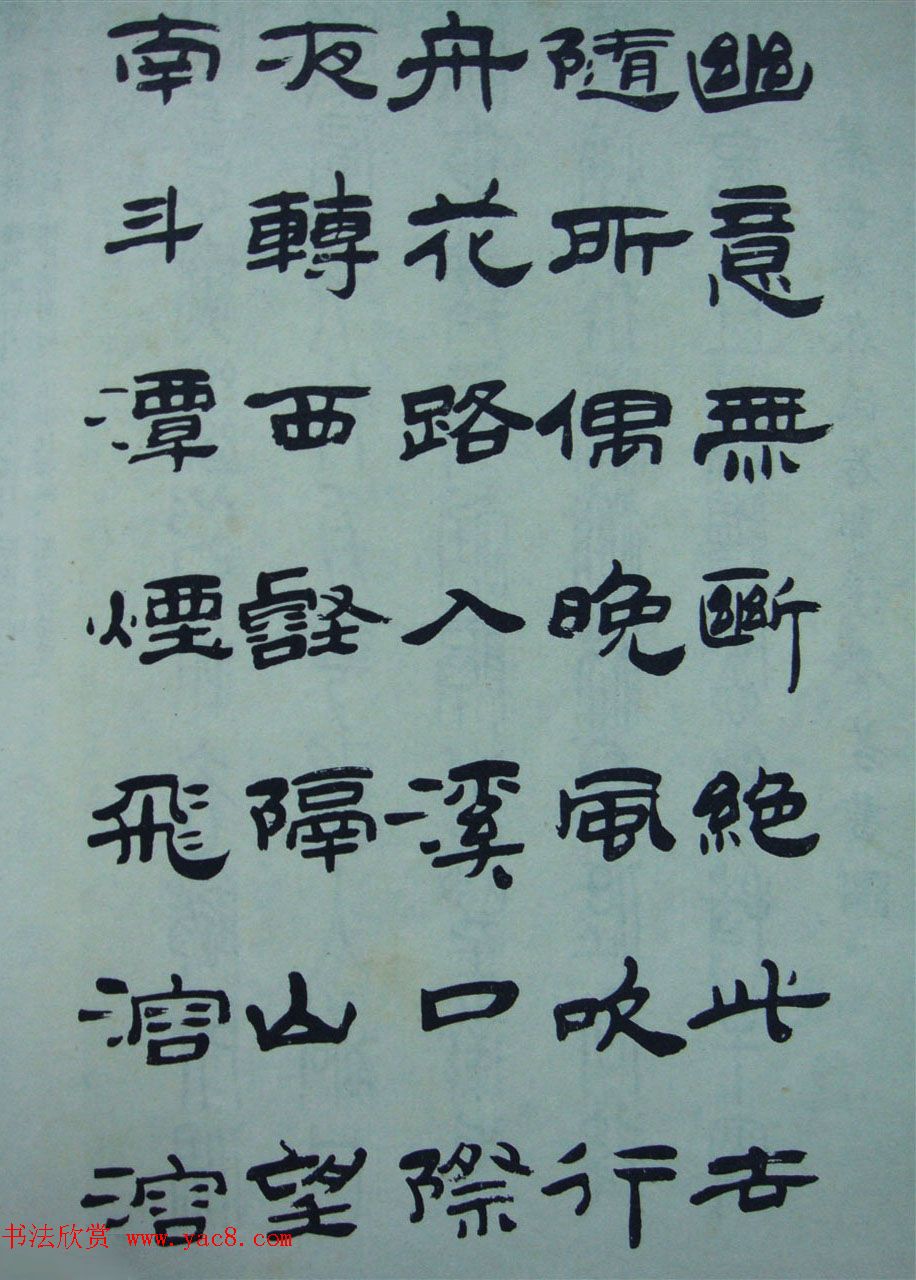 幽意無斷絕此去
隨所偶晚風吹行
舟花路入溪口際
夜轉西壑隔山望
南斗潭煙飛溶溶
书法欣赏 www.yac8.com